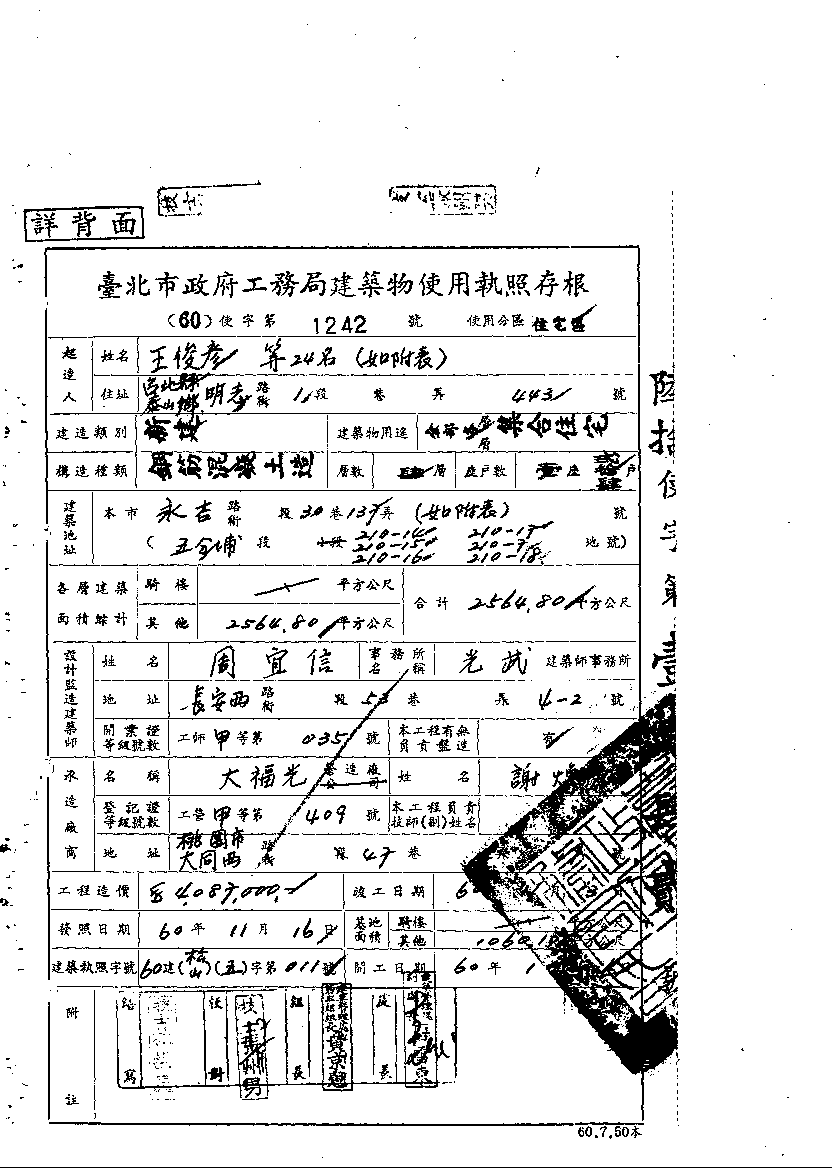 詳背面
臺北市政府工務局建築物使用執照存根
(60)使字第 1242 號 使用分區 住宅區
起造人 姓名 王俊彥 等24名(如附表)
住址 台北縣泰山鄉 明志 路街 1段 巷 弄 443 號
建造類別 新建 建築物用途 集合住宅
構造種類 鋼筋混凝土造 層數 層 座戶數 壹座 戶
建築地址 本市 永吉 路街 段 30巷 137弄 (如附表) 號
(五全埔 段 小段 210-14 210-17
210-15 210-7 地號)
210-16 210-18
各層建築面積總計 騎樓 平方公尺 合計 2564.80 平方公尺
其他 2564.80 平方公尺
設計監造建築師 姓名 周宜信 事務所名稱 光武 建築師事務所
地址 長安西 路街 段 53巷 弄 4-2 號
開業證等級號數 工師 甲等第 035 號 本工程有無負責監造 有
承造廠商 名稱 大福光 營造廠公司 姓名 謝
登記證等級號數 工營 甲等第 409 號 本工程負責技師(副)姓名
地址 桃園市大同西 路街 段 47巷 號
工程造價 4,087,000 竣工日期 60
發照日期 60年 11月 16日 基地面積 騎樓 公尺
其他 1060.
建築執照字號 60建(松山)(五)字第 011 號 開工日期 60年 1
附註 繕寫 校對 組長 課長
60.7.50本
陸拾使字第壹